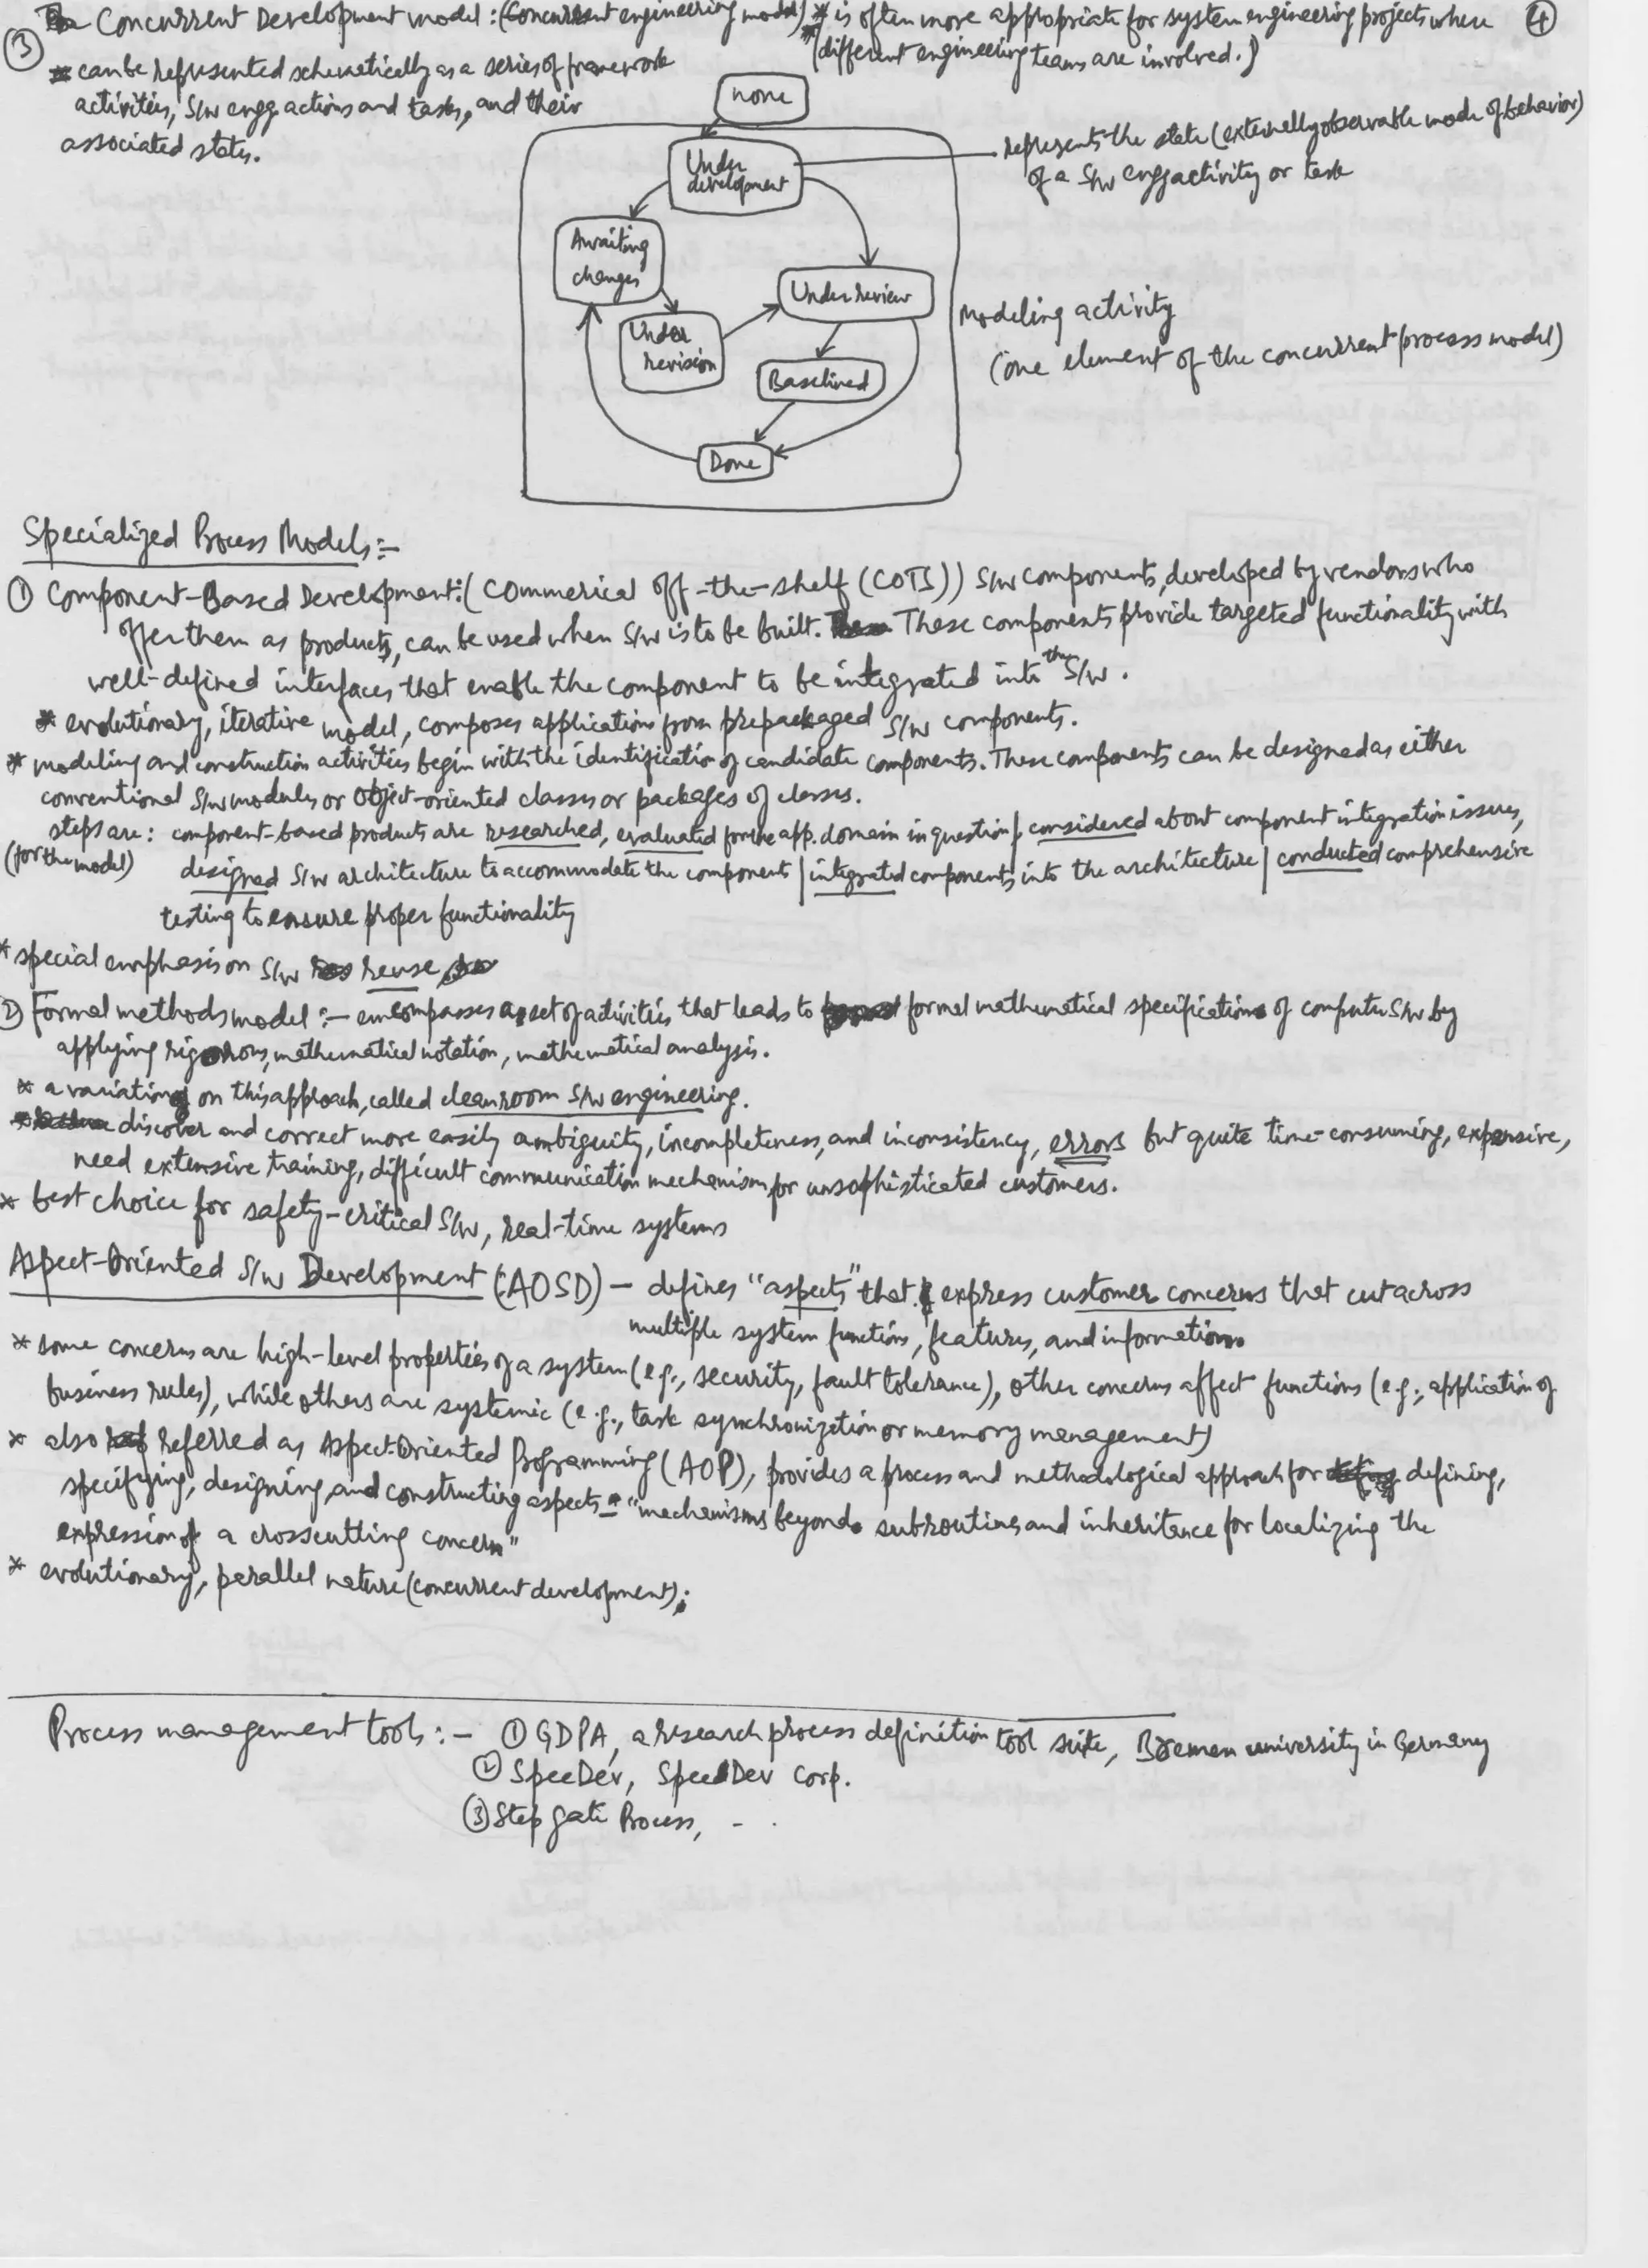 ③ Concurrent Development model : (Concurrent engineering model) * is often more appropriate for system engineering projects where ④
(different engineering teams are involved.)
* can be represented schematically as a series of framework
activities, S/w engg actions and tasks, and their
associated states.
none
Under
development
represents the state (externally observable mode of behavior)
of a S/w engg activity or task
Awaiting
changes
Under review
Under
revision
Modeling activity
(one element of the concurrent process model)
Baselined
Done
Specialized Process Models :-
① Component-Based Development : (Commerical off-the-shelf (COTS)) S/w components, developed by vendors who
offer them as products, can be used when S/w is to be built. These components provide targeted functionality with
well-defined interfaces that enable the component to be integrated into the S/w.
* evolutionary, iterative model, composes applications from prepackaged S/w components.
* modeling and construction activities begin with the identification of candidate components. These components can be designed as either
conventional S/w modules or object-oriented classes or packages of classes.
steps are : component-based products are researched, evaluated for the app. domain in question / considered about component integration issues,
(for the model) designed S/w architecture to accommodate the components / integrated components into the architecture / conducted comprehensive
testing to ensure proper functionality
* special emphasis on S/w reuse
② Formal methods model :- encompasses a set of activities that leads to formal mathematical specifications of computer S/w by
applying rigorous, mathematical notation, mathematical analysis.
* a variation on this approach, called cleanroom S/w engineering.
* discover and correct more easily ambiguity, incompleteness, and inconsistency, errors but quite time-consuming, expensive,
need extensive training, difficult communication mechanism for unsophisticated customers.
* best choice for safety-critical S/w, real-time systems
Aspect-Oriented S/w Development (AOSD) - defines "aspects" that express customer concerns that cut across
multiple system functions, features, and information
* some concerns are high-level properties of a system (e.g., security, fault tolerance), other concerns affect functions (e.g., application of
business rules), while others are systemic (e.g., task synchronization or memory management)
* also referred as Aspect-Oriented Programming (AOP), provides a process and methodological approach for defining,
specifying, designing, and constructing aspects - "mechanisms beyond subroutines and inheritance for localizing the
expression of a crosscutting concern"
* evolutionary, parallel nature (concurrent development).
Process management tools :- ① GDPA, a research process definition tool suite, Bremen university in Germany
② SpeeDev, SpeeDev Corp.
③ Step gate Process, - .